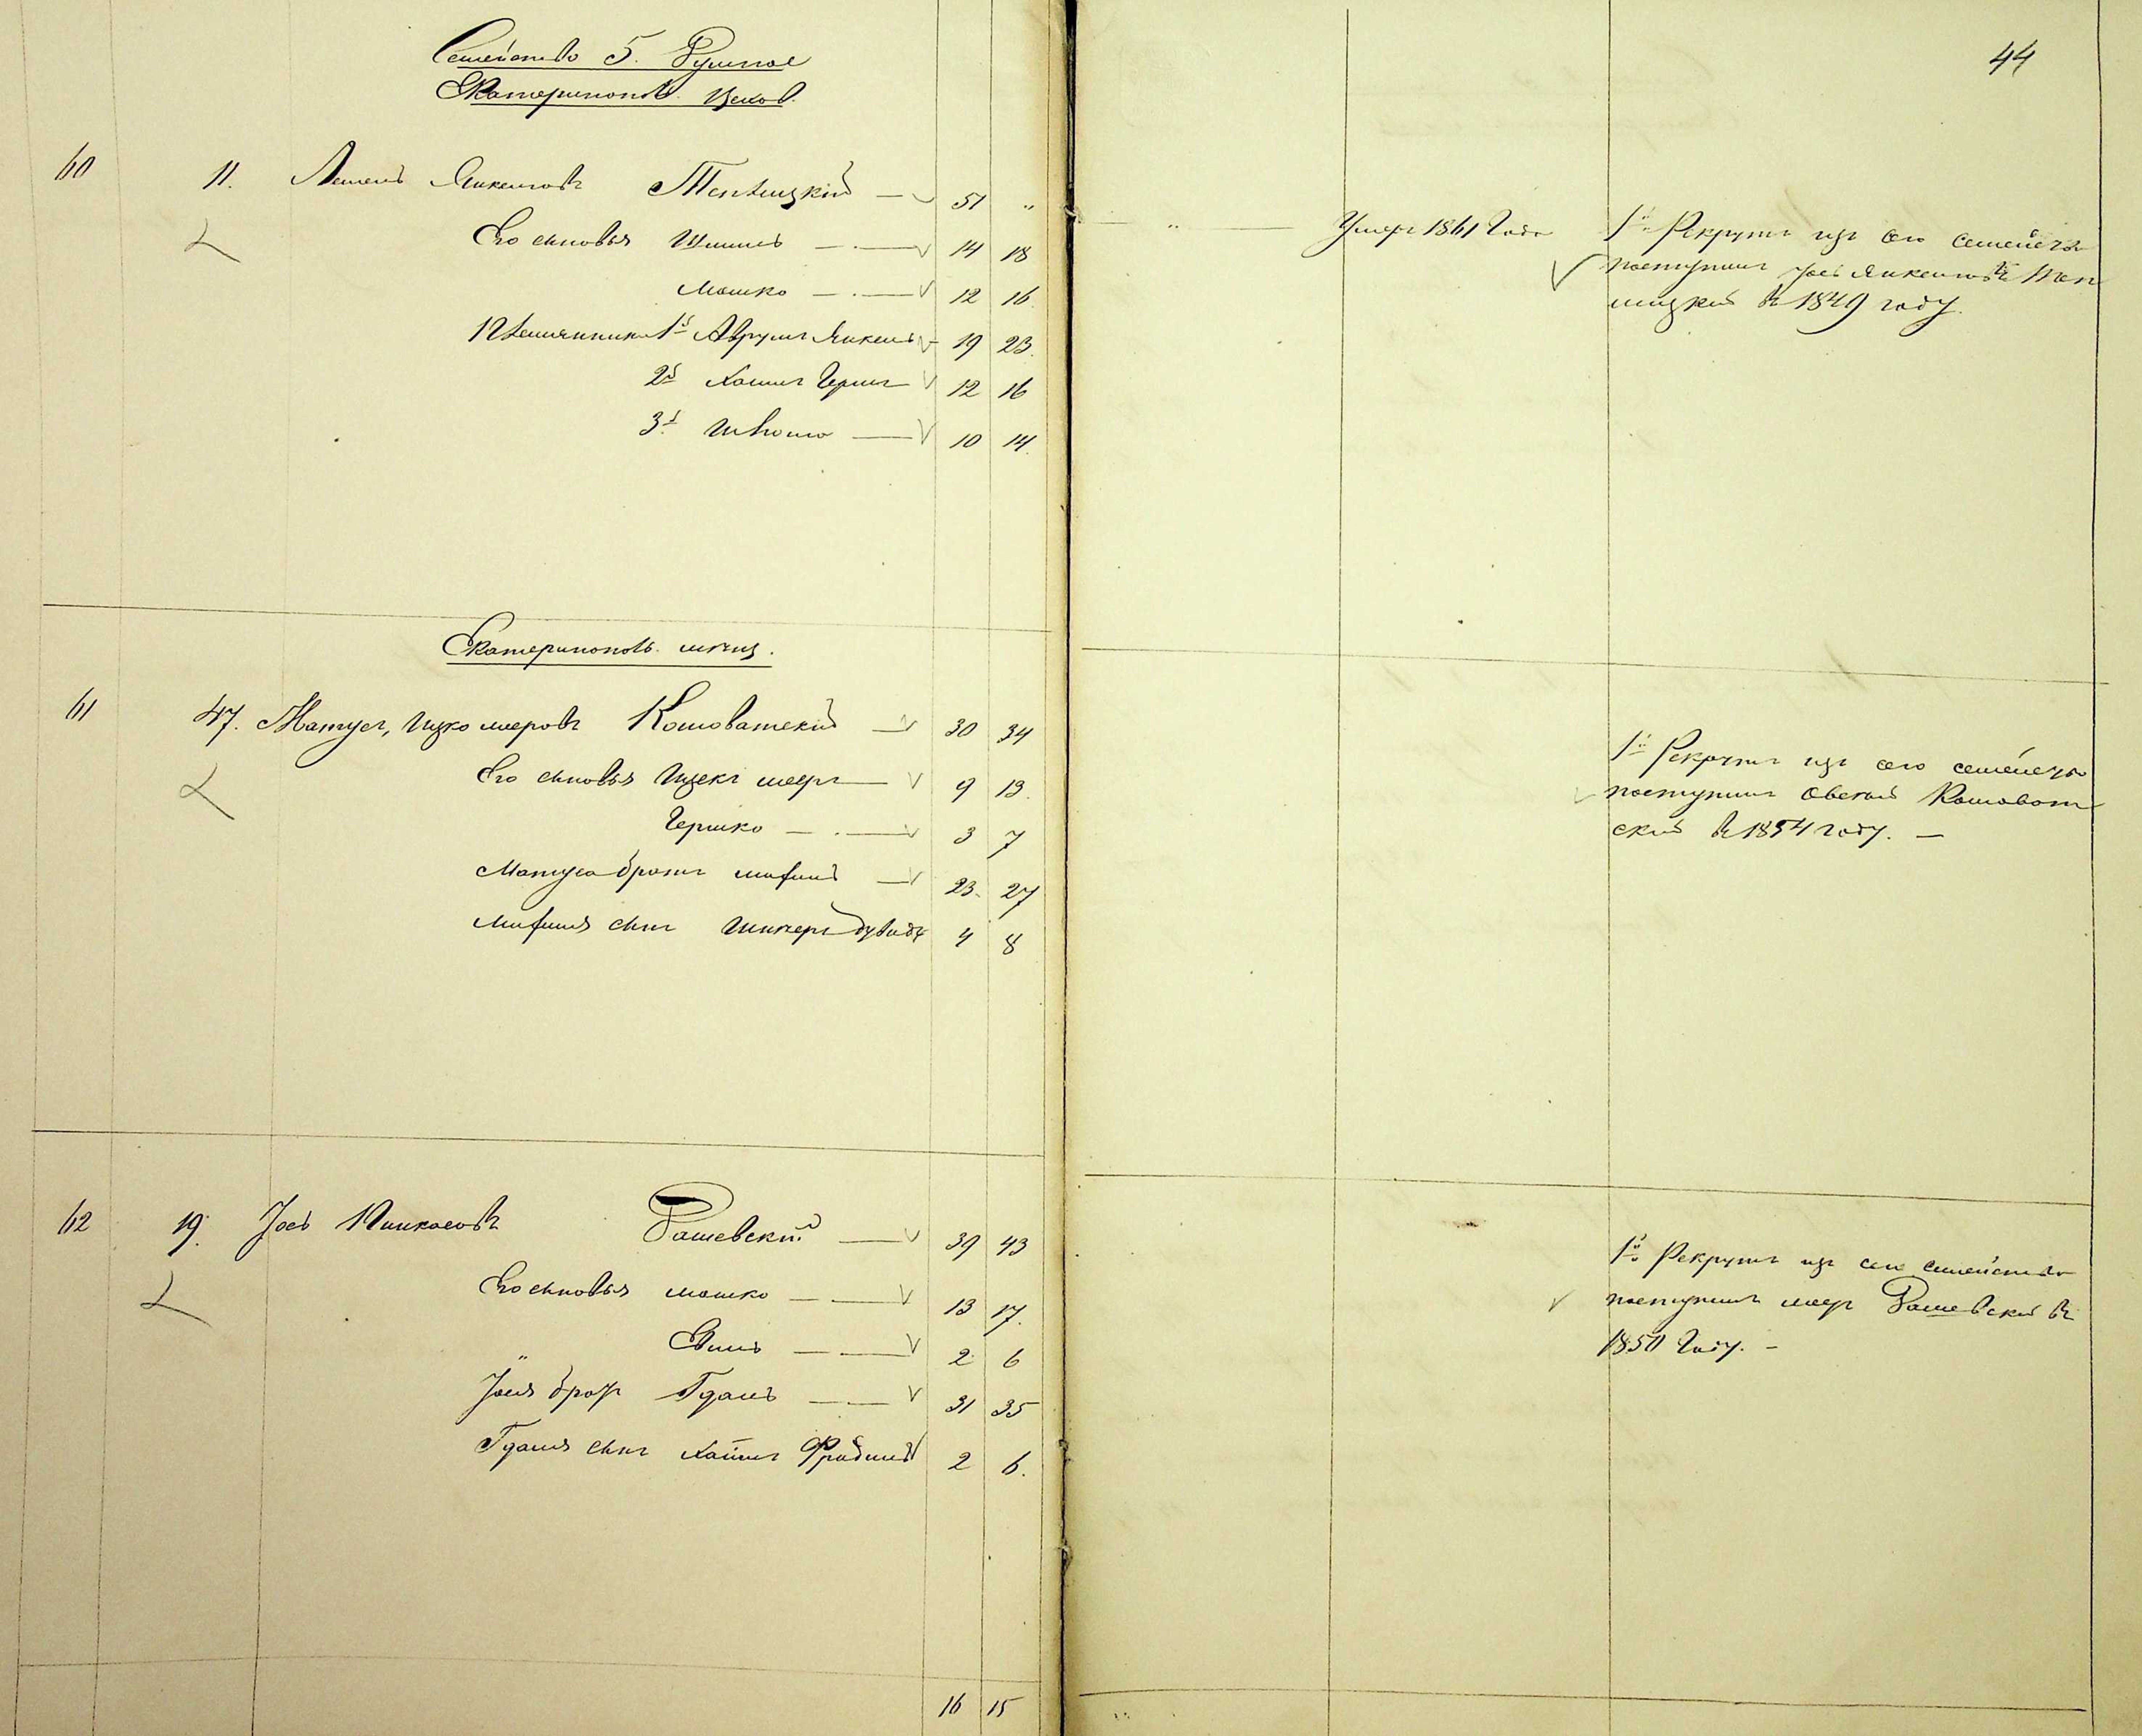 Семейство 5. Душное
Екатериноп. Цехов.
44
60 11. Лейзель Янкелевъ Теплицкій 51 "
" Умеръ 1861 года
Его сыновья Шмиль 14 18
Мошко 12 16.
Племянники 1й Аврумъ Янкель 19 23.
2й Хаимъ Гершъ 12 16
3й 10 14.
1й Рекрутъ изъ сего семейства
поступилъ Іось Янкелевъ Теп
лицкій въ 1849 году.
Екатериноп. мѣщ.
61 47. Матусъ, Ицко Мееровъ Кошоватскій 30 34
Его сыновья Ицекъ Мееръ 9 13.
Гершко 3 7
Матуса братъ 23. 27
сынъ Дувидъ 4 8
1й Рекрутъ изъ сего семейства
поступилъ Овсей Кошоват
скій въ 1854 году. —
62 19. Іось Пинкасовъ Рашевскій 39 43
Его сыновья Мошко 13 17.
2 6
Іося братъ Гдаль 31 35
Гдаля сынъ Хаимъ 2 6.
1й Рекрутъ изъ сего семейства
поступилъ Мееръ Рашевскій въ
1850 году. —
16 15